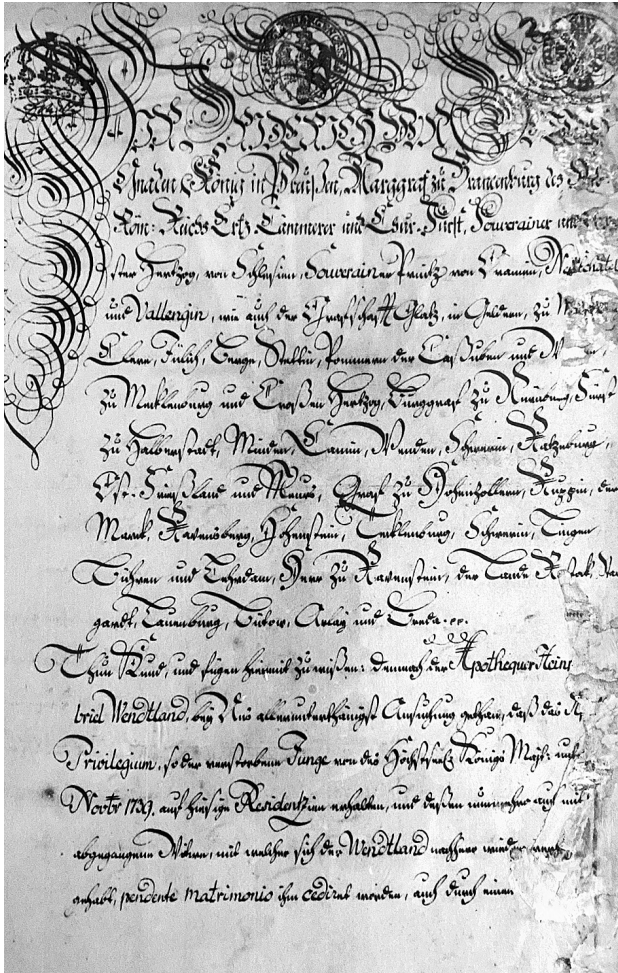 Wir Friderich von
Gnaden König in Preußen, Marggraf zu Brandenburg des
Röm: Reichs Ertz-Cämmerer und Chur-Fürst, Souverainer und
ster Hertzog, von Schlesien, Souverainer Printz von Oranien,
und Vallengin, wie auch der Graffschafft Glatz, in Geldern, zu
Cleve, Jülich, Berge, Stettin, Pommern der Caßuben und
zu Mecklenburg und Croßen Hertzog, Burggraf zu Nürnberg, Fürst
zu Halberstadt, Minden, Camin, Wenden, Schwerin, Ratzeburg,
Ost-Frießland und Meurs, Graf zu Hohenzollern, Ruppin, der
Marck, Ravensberg, Hohenstein, Tecklenburg, Schwerin, Lingen
Bühren und Lehrdam, Herr zu Ravenstein, der Lande Rostock,
gardt, Lauenburg, Bütow, Arlay und Breda
Thun Kund, und fügen hiermit zu wißen: demnach der Apothequer
briel Wendtland, bey Uns allerunterthänigst Ansuchung gethan, daß das
Privilegium, so der verstorbene Junge von des Höchstseel: Königs Majt:
Novbr 1739. auf hiesige Residentzien erhalten, und deßen nunmehro auch mit
abgegangene Witwe, mit welcher sich der Wendtland nachhero wieder
gehabt, pendente matrimonio ihm cediret worden, auch durch einen